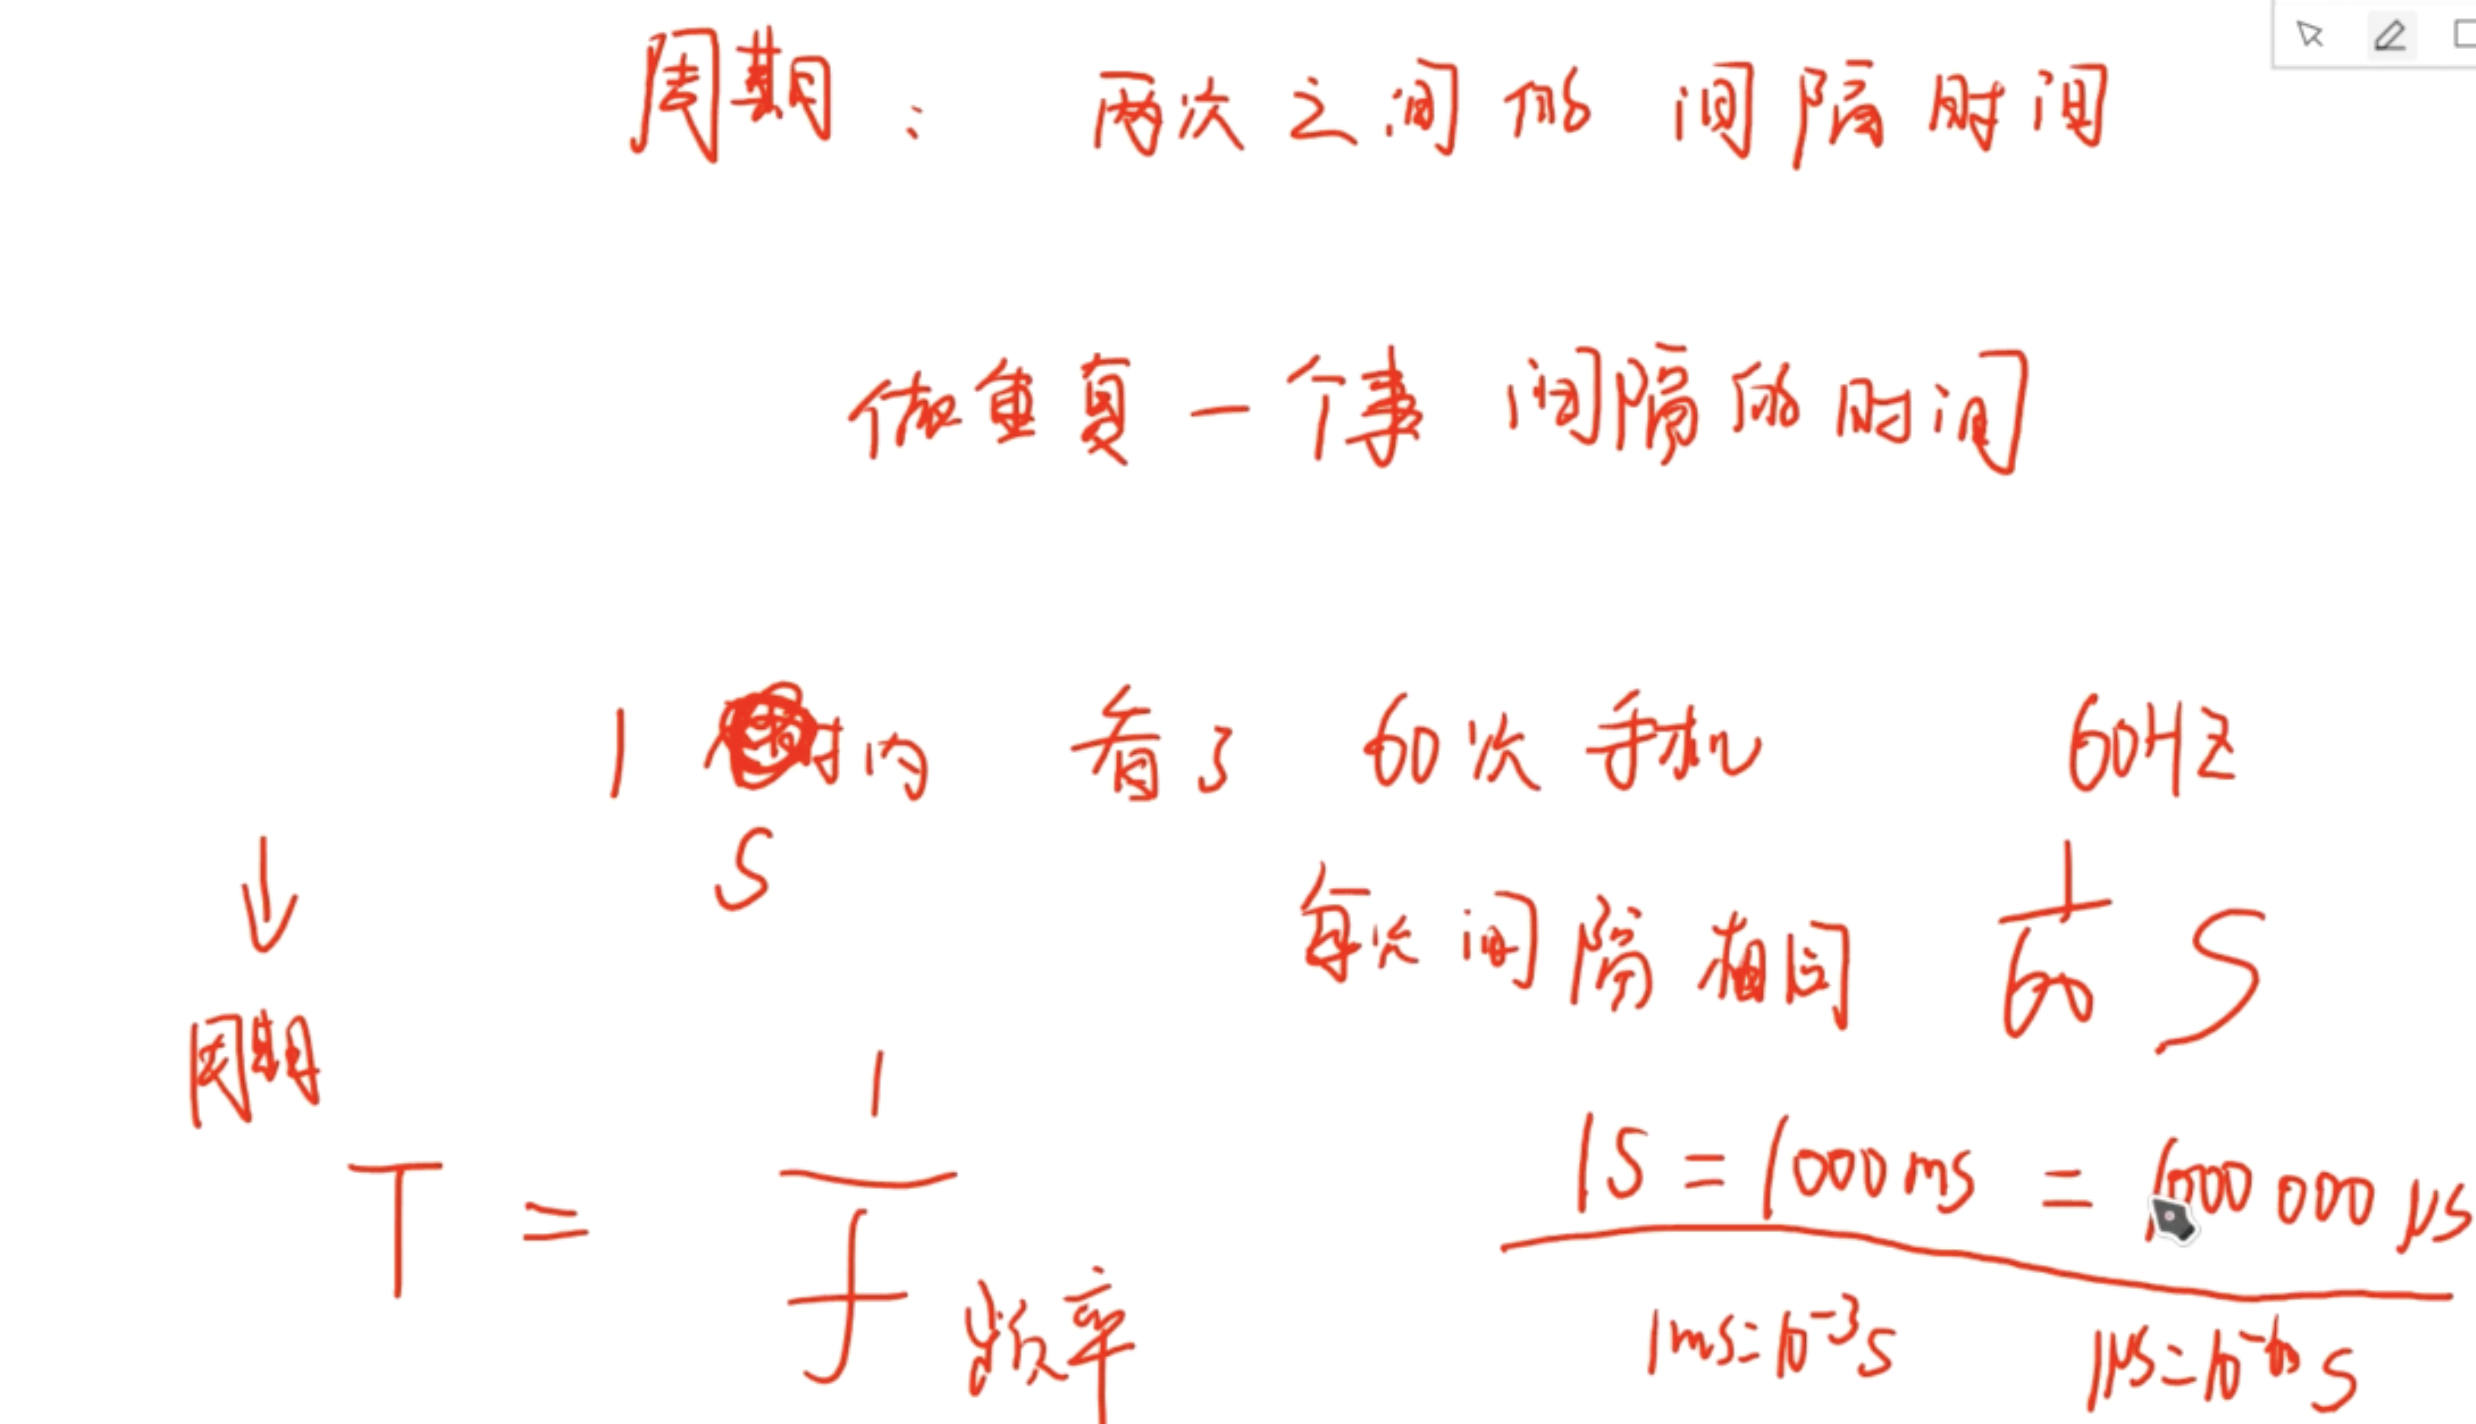 周期： 两次之间的 间隔时间
做重复一个事 间隔的时间
1 时内 看了 60次 手机 60HZ
S
每次间隔相同 1/60 S
周期
T = 1/f 频率
1S = 1000ms = 1000 000 μs
1ms=10⁻³s 1μs=10⁻⁶s